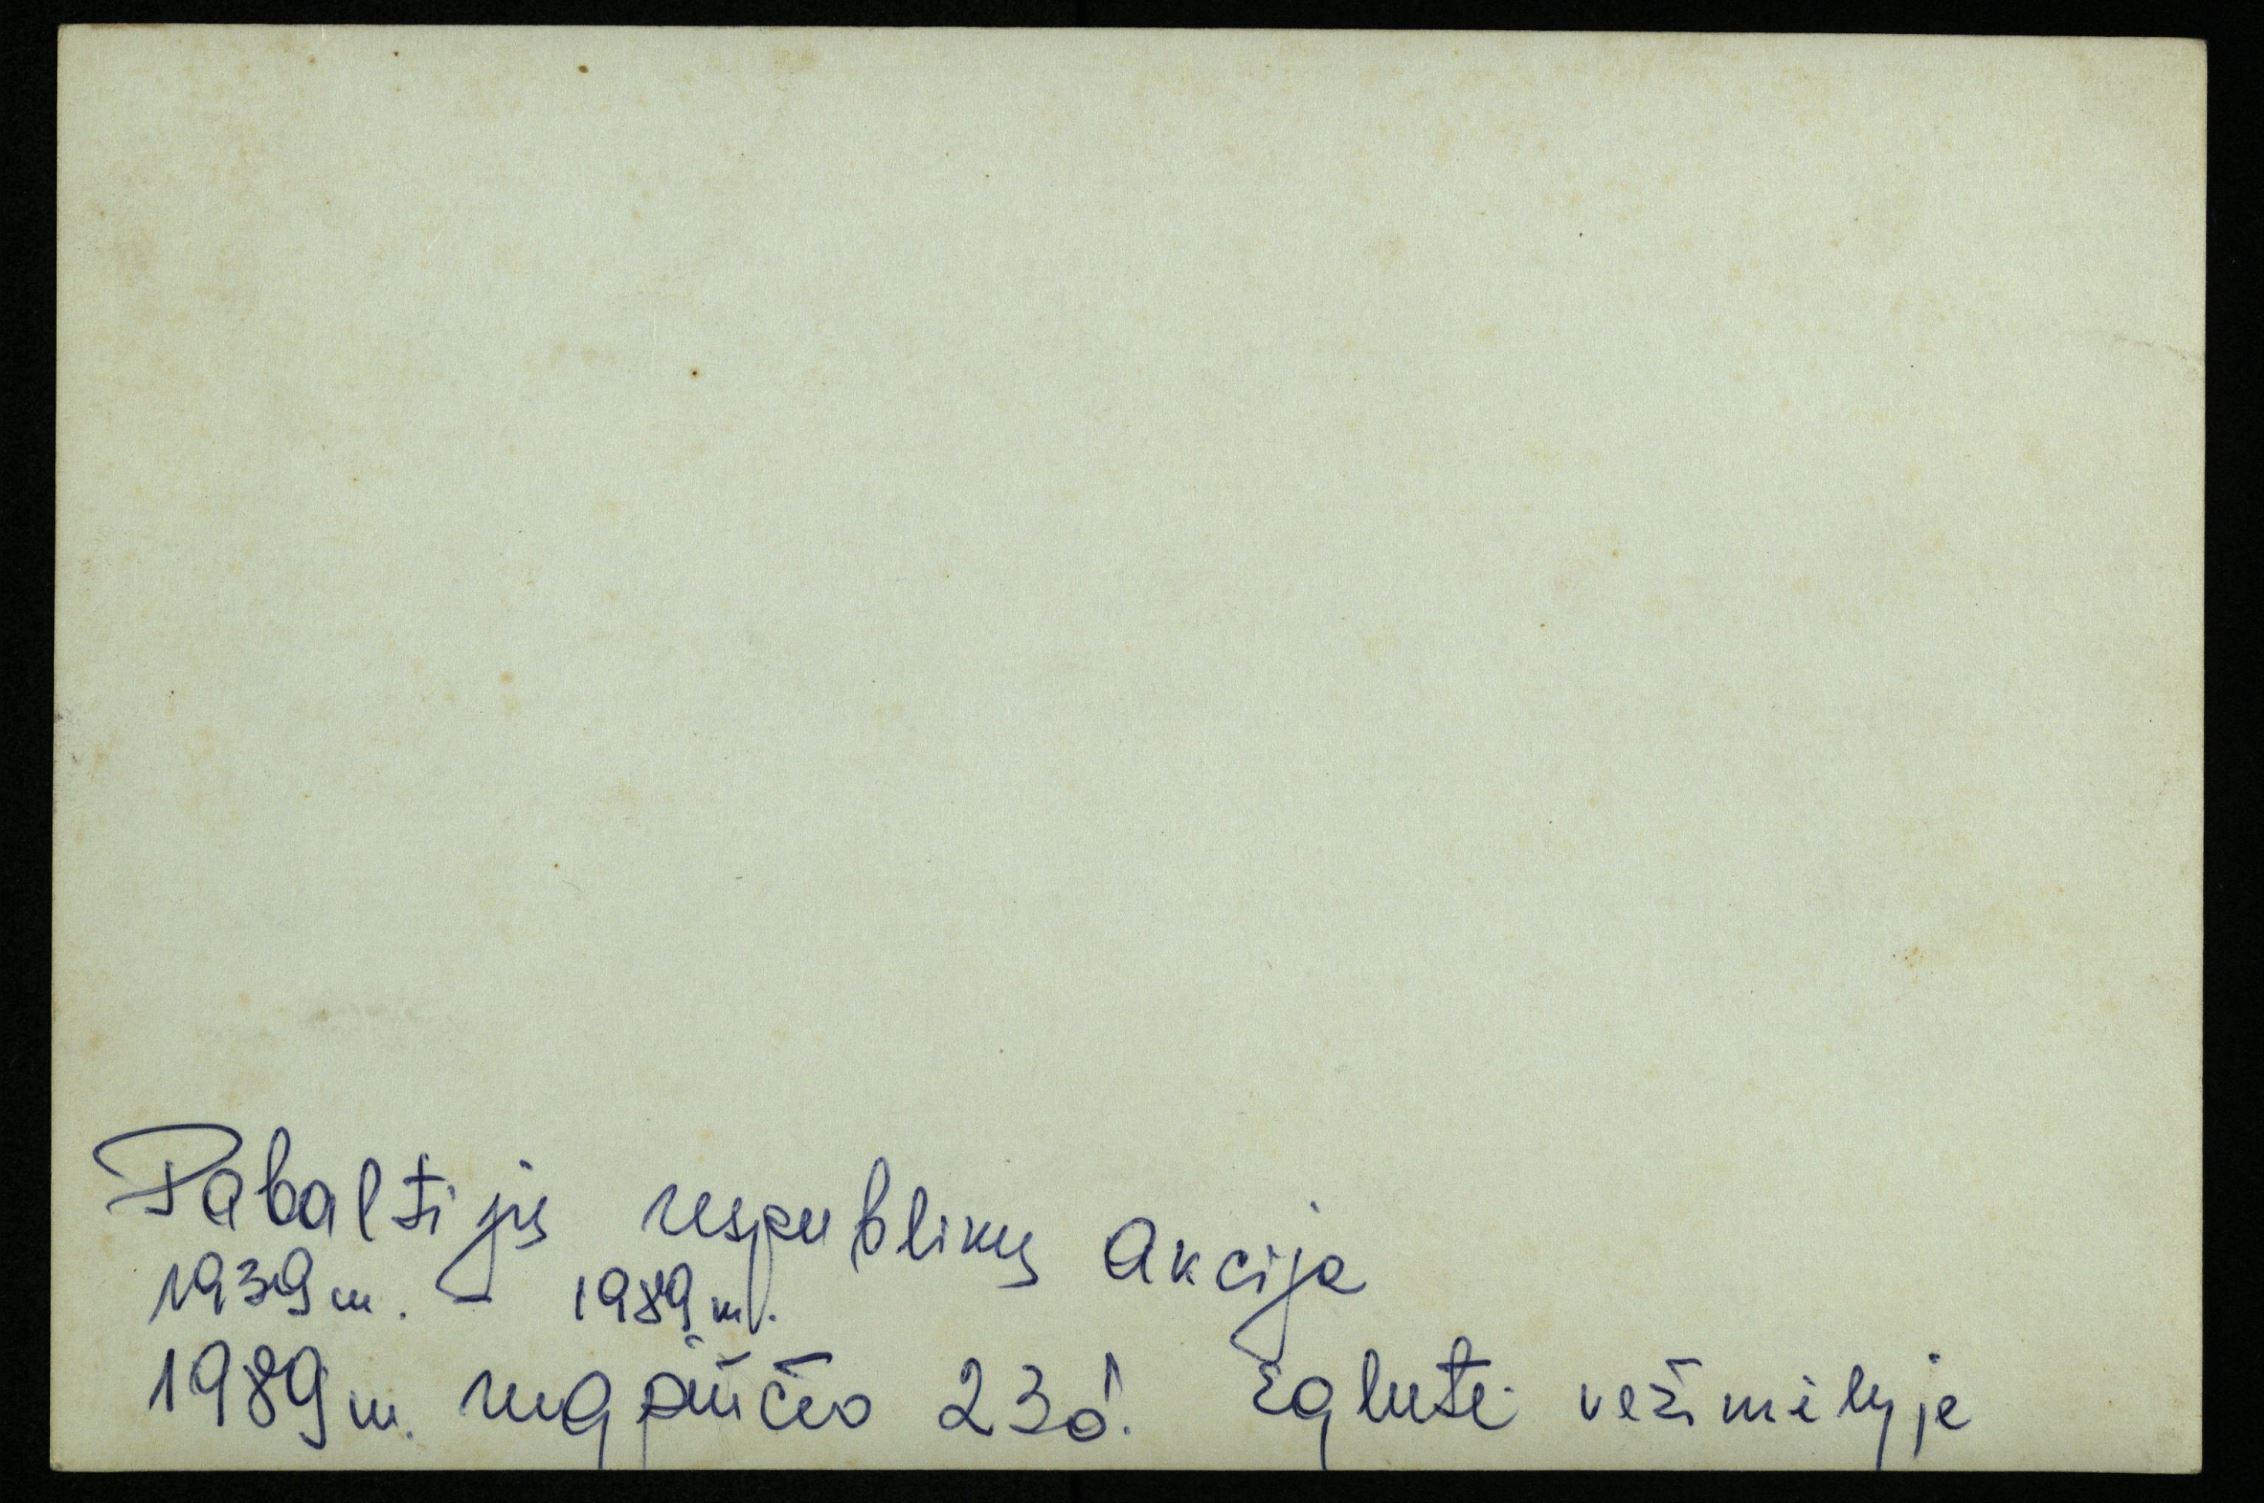 Pabaltijų respublikų akcija
1939 m. – 1989 m.
1989 m. rugpiučio 23 d. Eglutė vežimėlyje